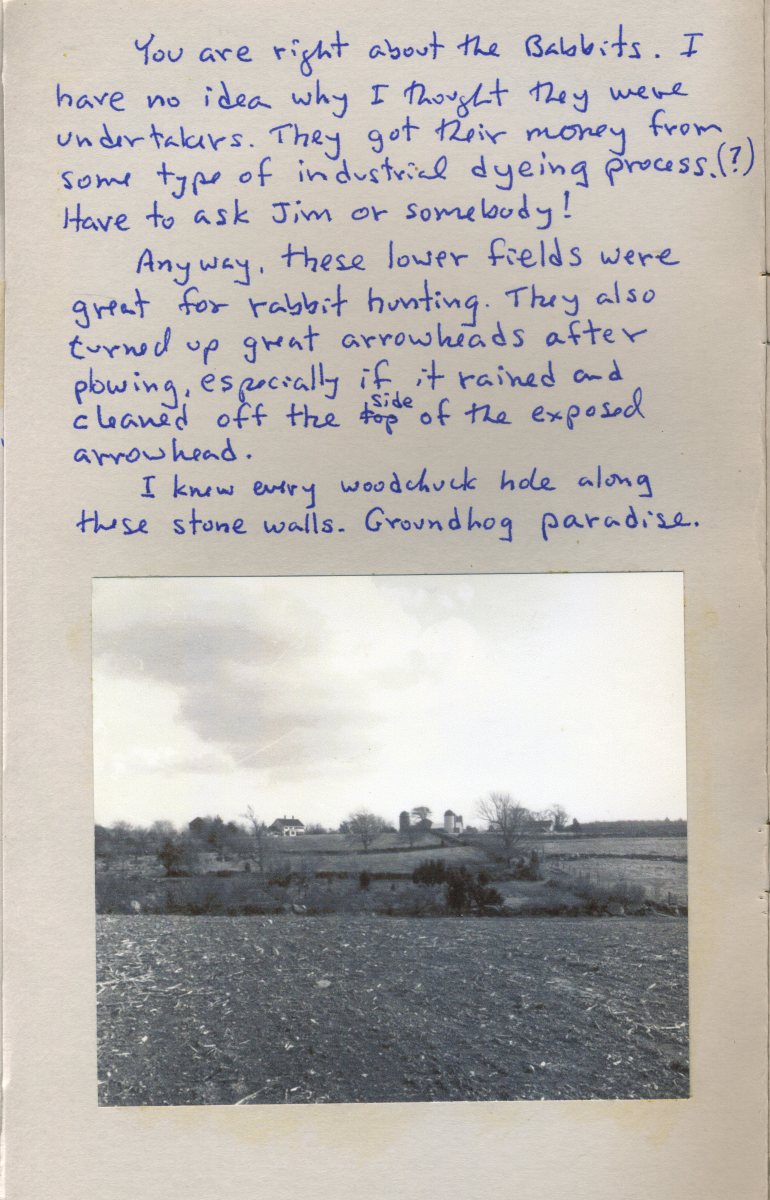 You are right about the Babbits. I
have no idea why I thought they were
undertakers. They got their money from
some type of industrial dyeing process.(?)
Have to ask Jim or somebody!
Anyway, these lower fields were
great for rabbit hunting. They also
turned up great arrowheads after
plowing, especially if it rained and
cleaned off the top side of the exposed
arrowhead.
I knew every woodchuck hole along
these stone walls. Groundhog paradise.